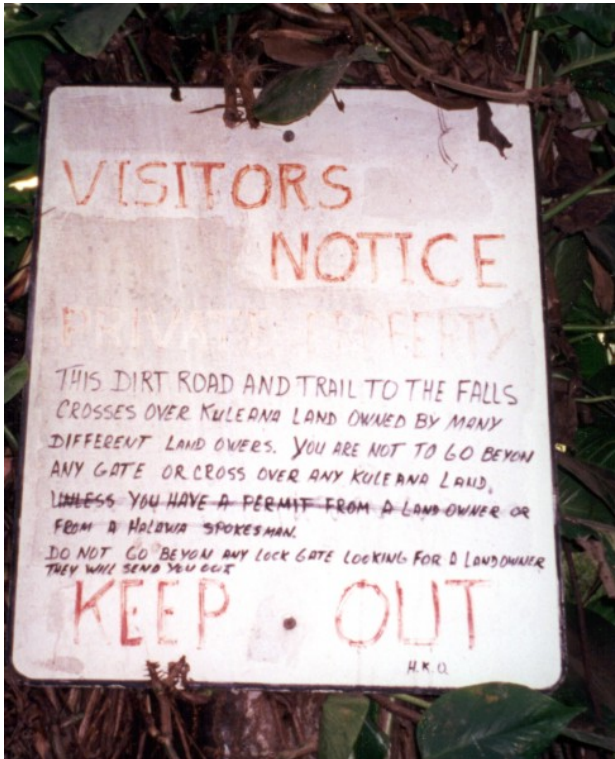 VISITORS
NOTICE
PRIVATE PROPERTY
THIS DIRT ROAD AND TRAIL TO THE FALLS
CROSSES OVER KULEANA LAND OWNED BY MANY
DIFFERENT LAND OWERS. YOU ARE NOT TO GO BEYON
ANY GATE OR CROSS OVER ANY KULEANA LAND.
UNLESS YOU HAVE A PERMIT FROM A LAND OWNER OR
FROM A HALAWA SPOKESMAN.
DO NOT GO BEYON ANY LOCK GATE LOOKING FOR A LANDOWNER
THEY WILL SEND YOU OUT
KEEP OUT
H.K.O.